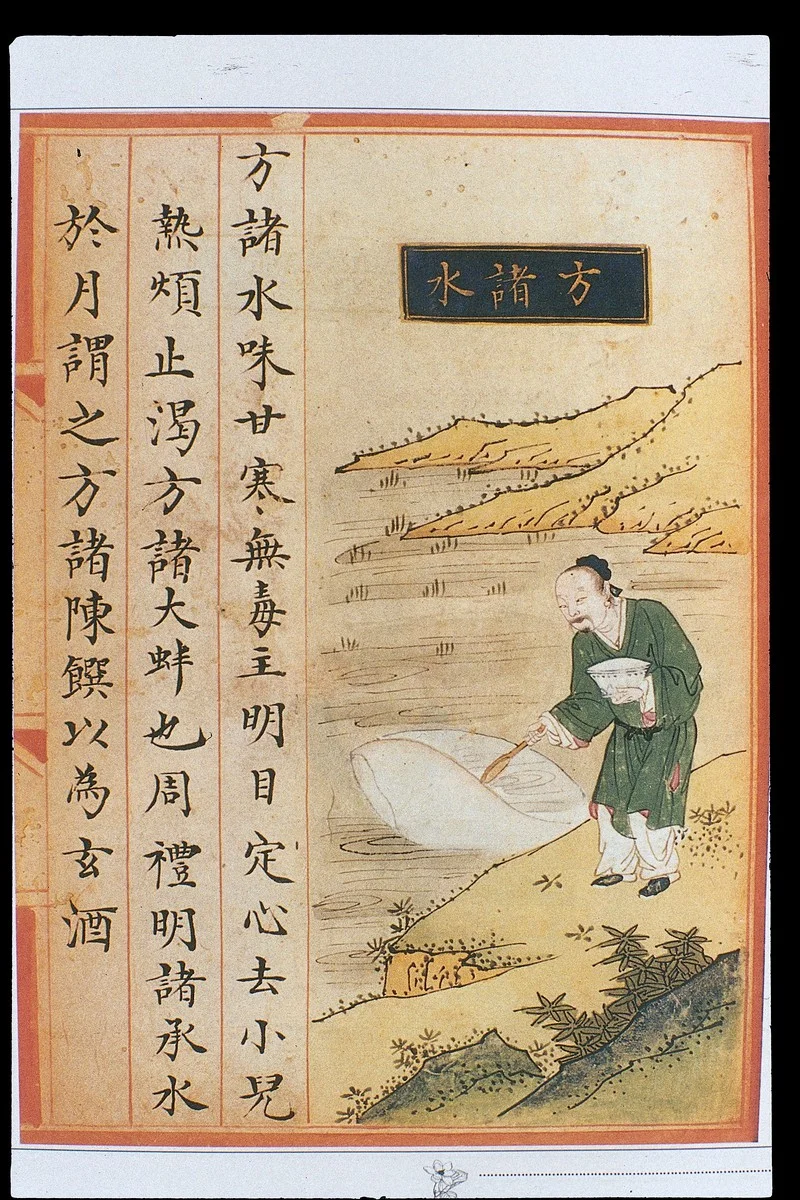 方諸水
方諸水味甘寒無毒主明目定心去小兒
熱煩止渴方諸大蚌也周禮明諸承水
於月謂之方諸陳饌以為玄酒